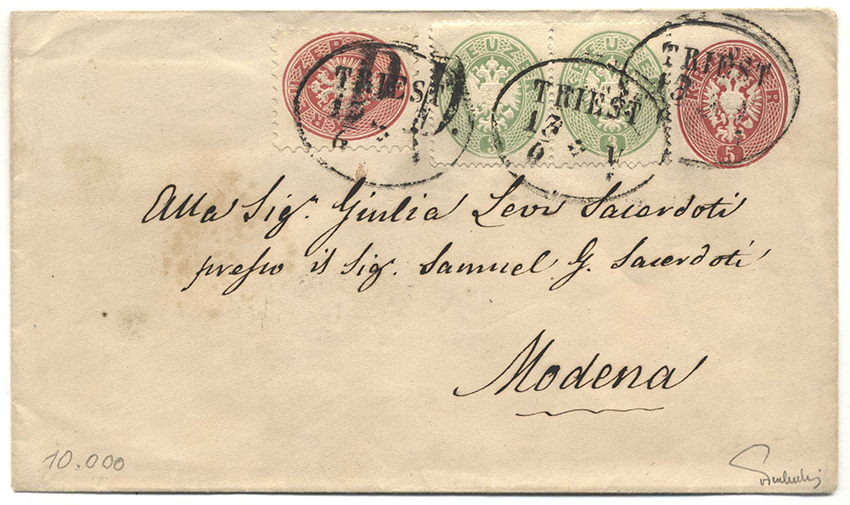 TRIEST
13
6
P.D.
TRIEST
13
6
V
TRIEST
13
5
Alla Sigr. Giulia Levi Sacerdoti
presso il Sig. Samuel G. Sacerdoti
Modena
10.000